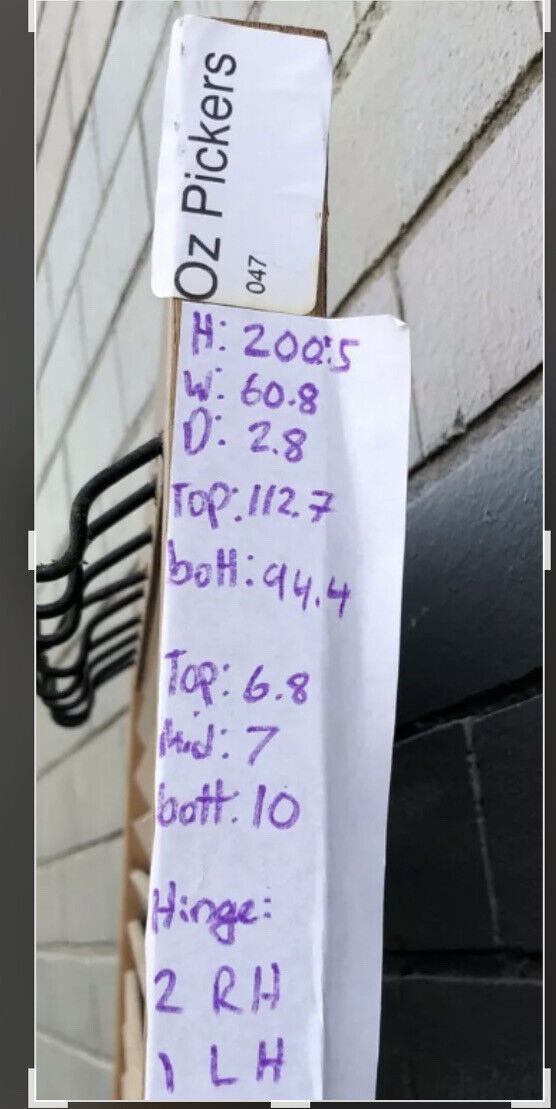 Oz Pickers
047
H: 200.5
W: 60.8
D: 2.8
Top: 112.7
bott: 94.4
Top: 6.8
Mid: 7
bott: 10
Hinge:
2 RH
1 LH